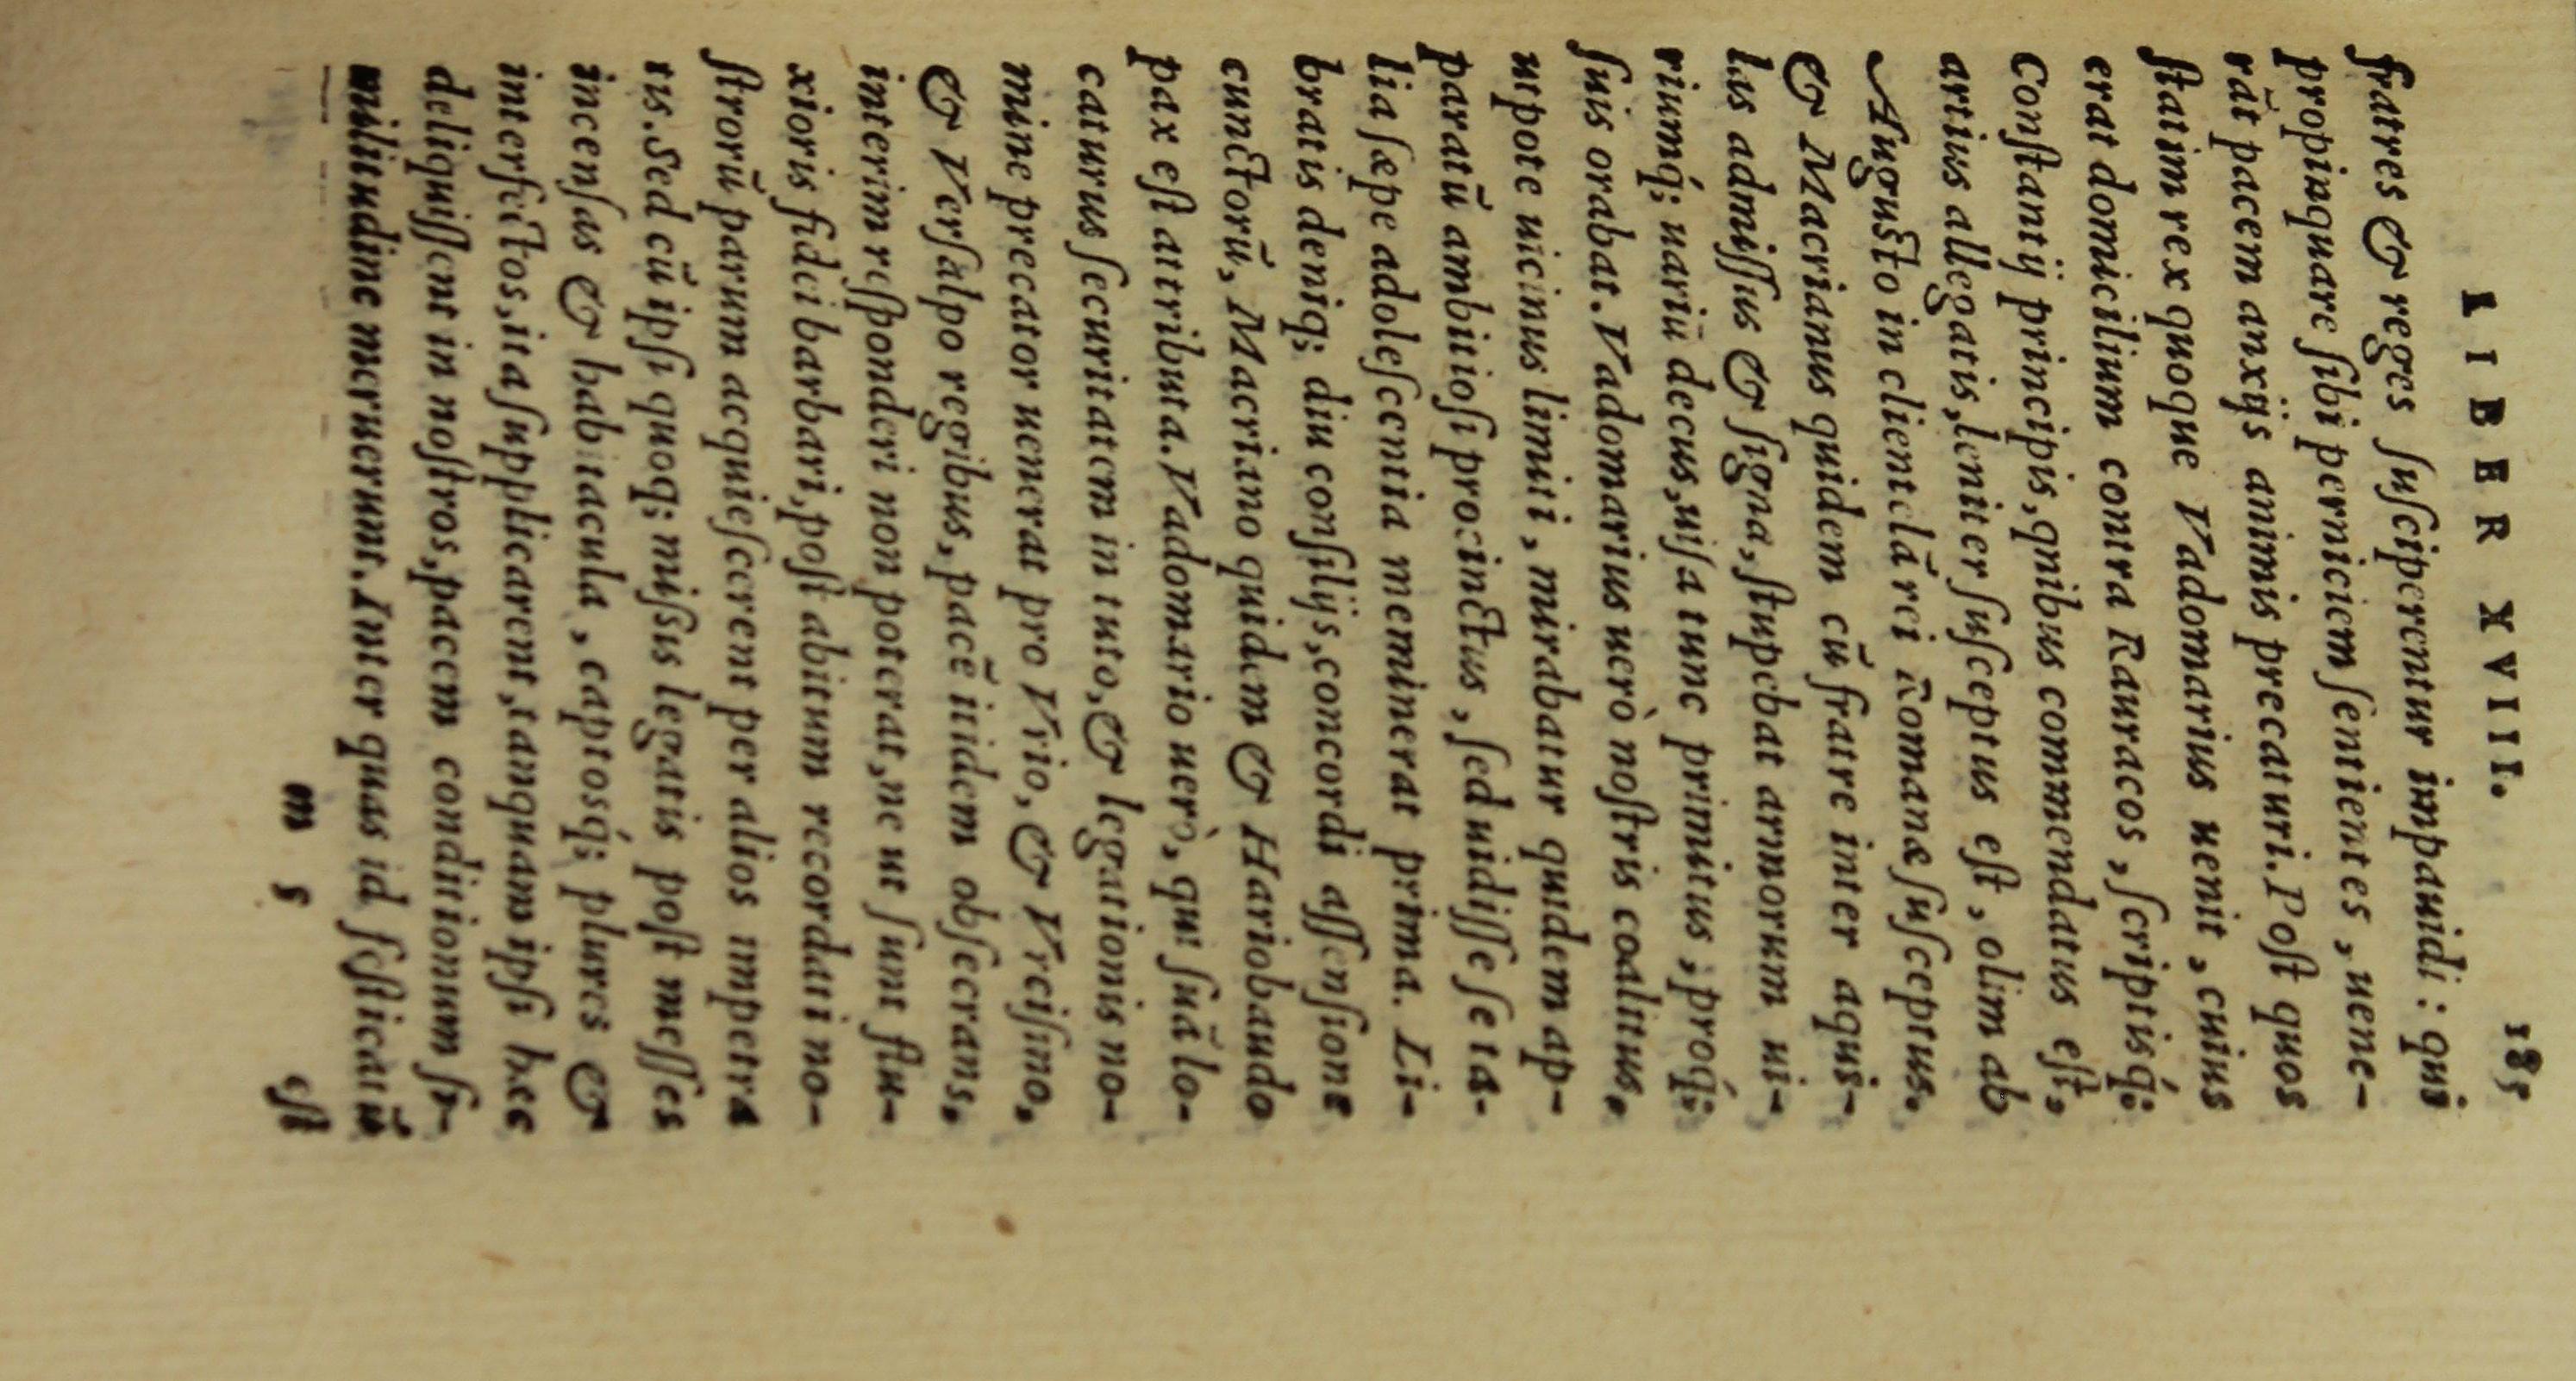 LIBER XVIII. 185
fratres & reges ſuſciperentur impauidi: qui
propinquare ſibi perniciem ſentientes, uene-
rāt pacem anxijs animis precaturi. Poſt quos
ſtatim rex quoque Vadomarius uenit, cuius
erat domicilium contra Rauracos, ſcriptisq́;
Conſtantij principis, quibus commendatus eſt,
artius allegatis, leniter ſuſceptus eſt, olim ab
Auguſto in clientelā rei Romanæ ſuſceptus.
& Macrianus quidem cū fratre inter aqui-
las admiſſus & ſigna, ſtupebat armorum ui-
riumq́; uariū decus, uiſa tunc primitus, proq́;
ſuis orabat. Vadomarius uerò noſtris coalitus,
utpote uicinus limiti, mirabatur quidem ap-
paratū ambitioſi procinctus, ſed uidiſſe ſe ta-
lia ſæpe adoleſcentia meminerat prima. Li-
bratis deniq; diu conſilijs, concordi aſſenſione
cunctorū, Macriano quidem & Hariobaudo
pax eſt attributa. Vadomario uerò, qui ſuā lo-
caturus ſecuritatem in tuto, & legationis no-
mine precator uenerat pro Vrio, & Vrciſino,
& Verſalpo regibus, pacē itidem obſecrans,
interim reſponderi non poterat, ne ut ſunt flu-
xioris fidei barbari, poſt abitum recordati no-
ſtrorū parum acquieſcerent per alios impetra
tis. Sed cū ipſi quoq; miſsis legatis poſt meſſes
incenſas & habitacula, captosq́; plures &
interfectos, ita ſupplicarent, tanquam ipſi hæc
deliquiſſent in noſtros, pacem conditionum ſi-
militudine meruerunt. Inter quas id feſticatū
m 5 eſt